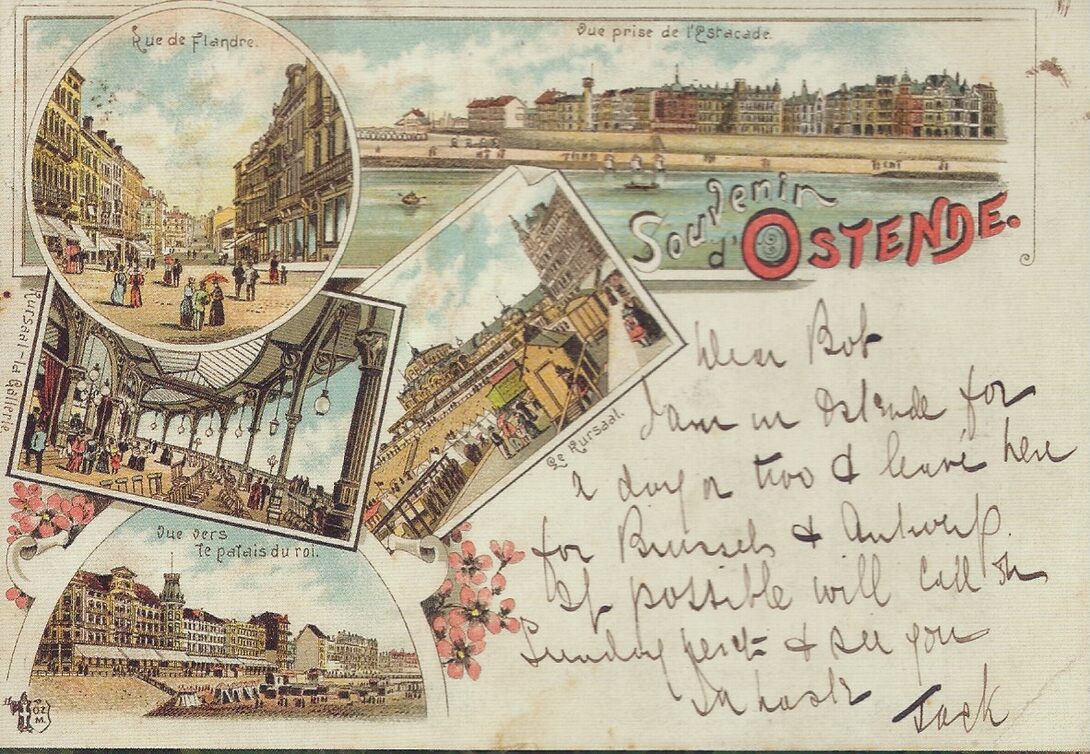 Rue de Flandre.
Vue prise de l'Estacade.
Souvenir
d'OSTENDE.
Kursaal-la Gallerie
Le Kursaal.
Vue vers
le palais du roi.
Dear Bob
I am in Ostende for
a day or two & leave here
for Brussels & Antwerp.
If possible will call on
Sunday next & see you
In haste
Jack